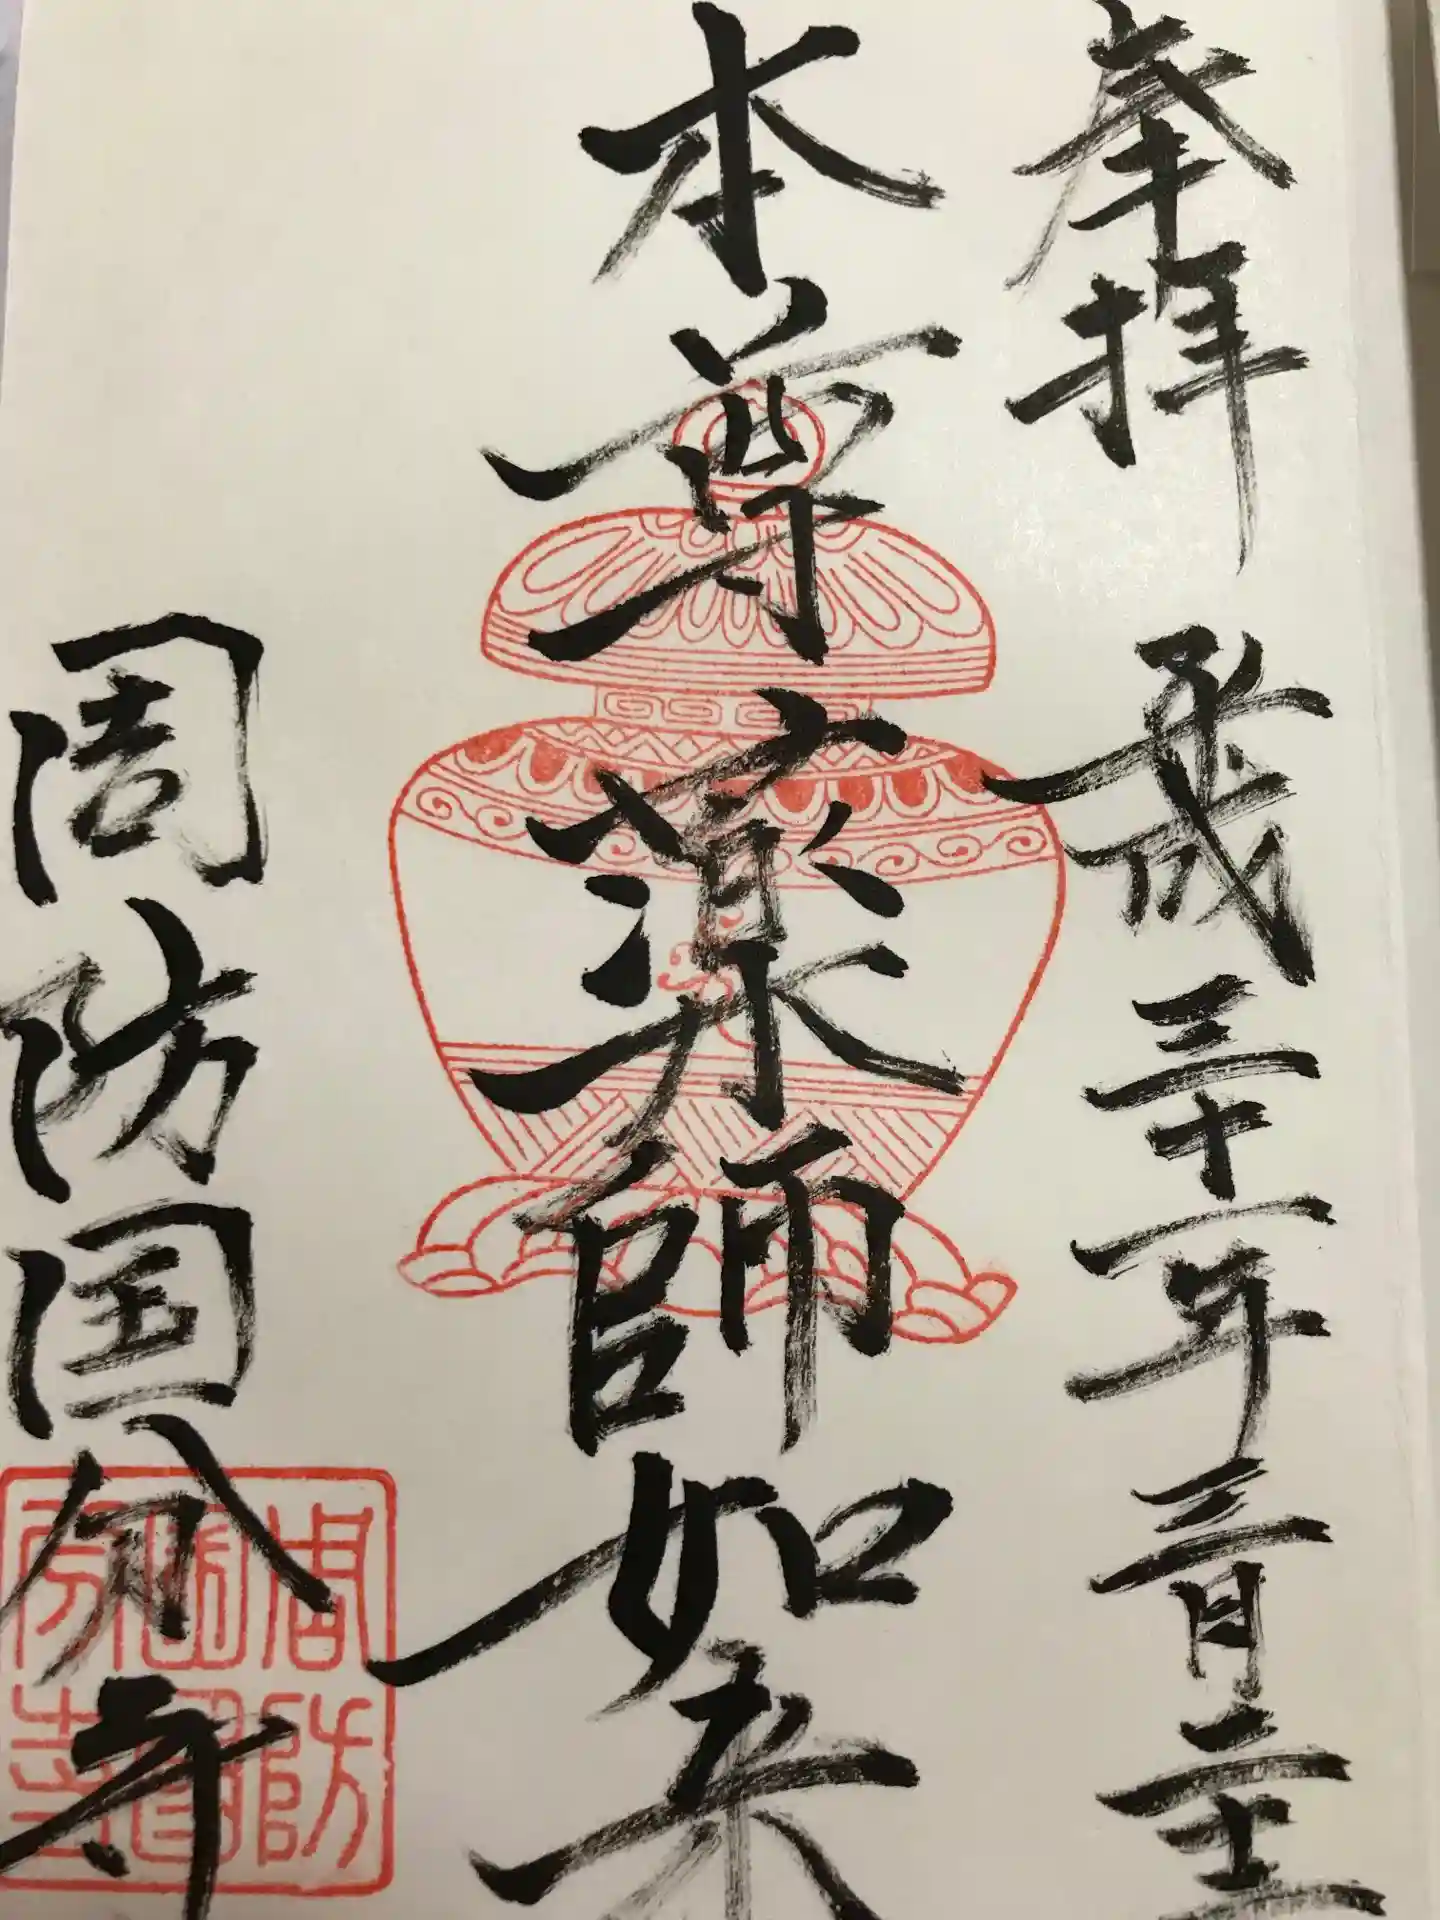 奉拝 平成三十一年三月二十
本尊 薬師如来
周防国分寺
周防国分寺